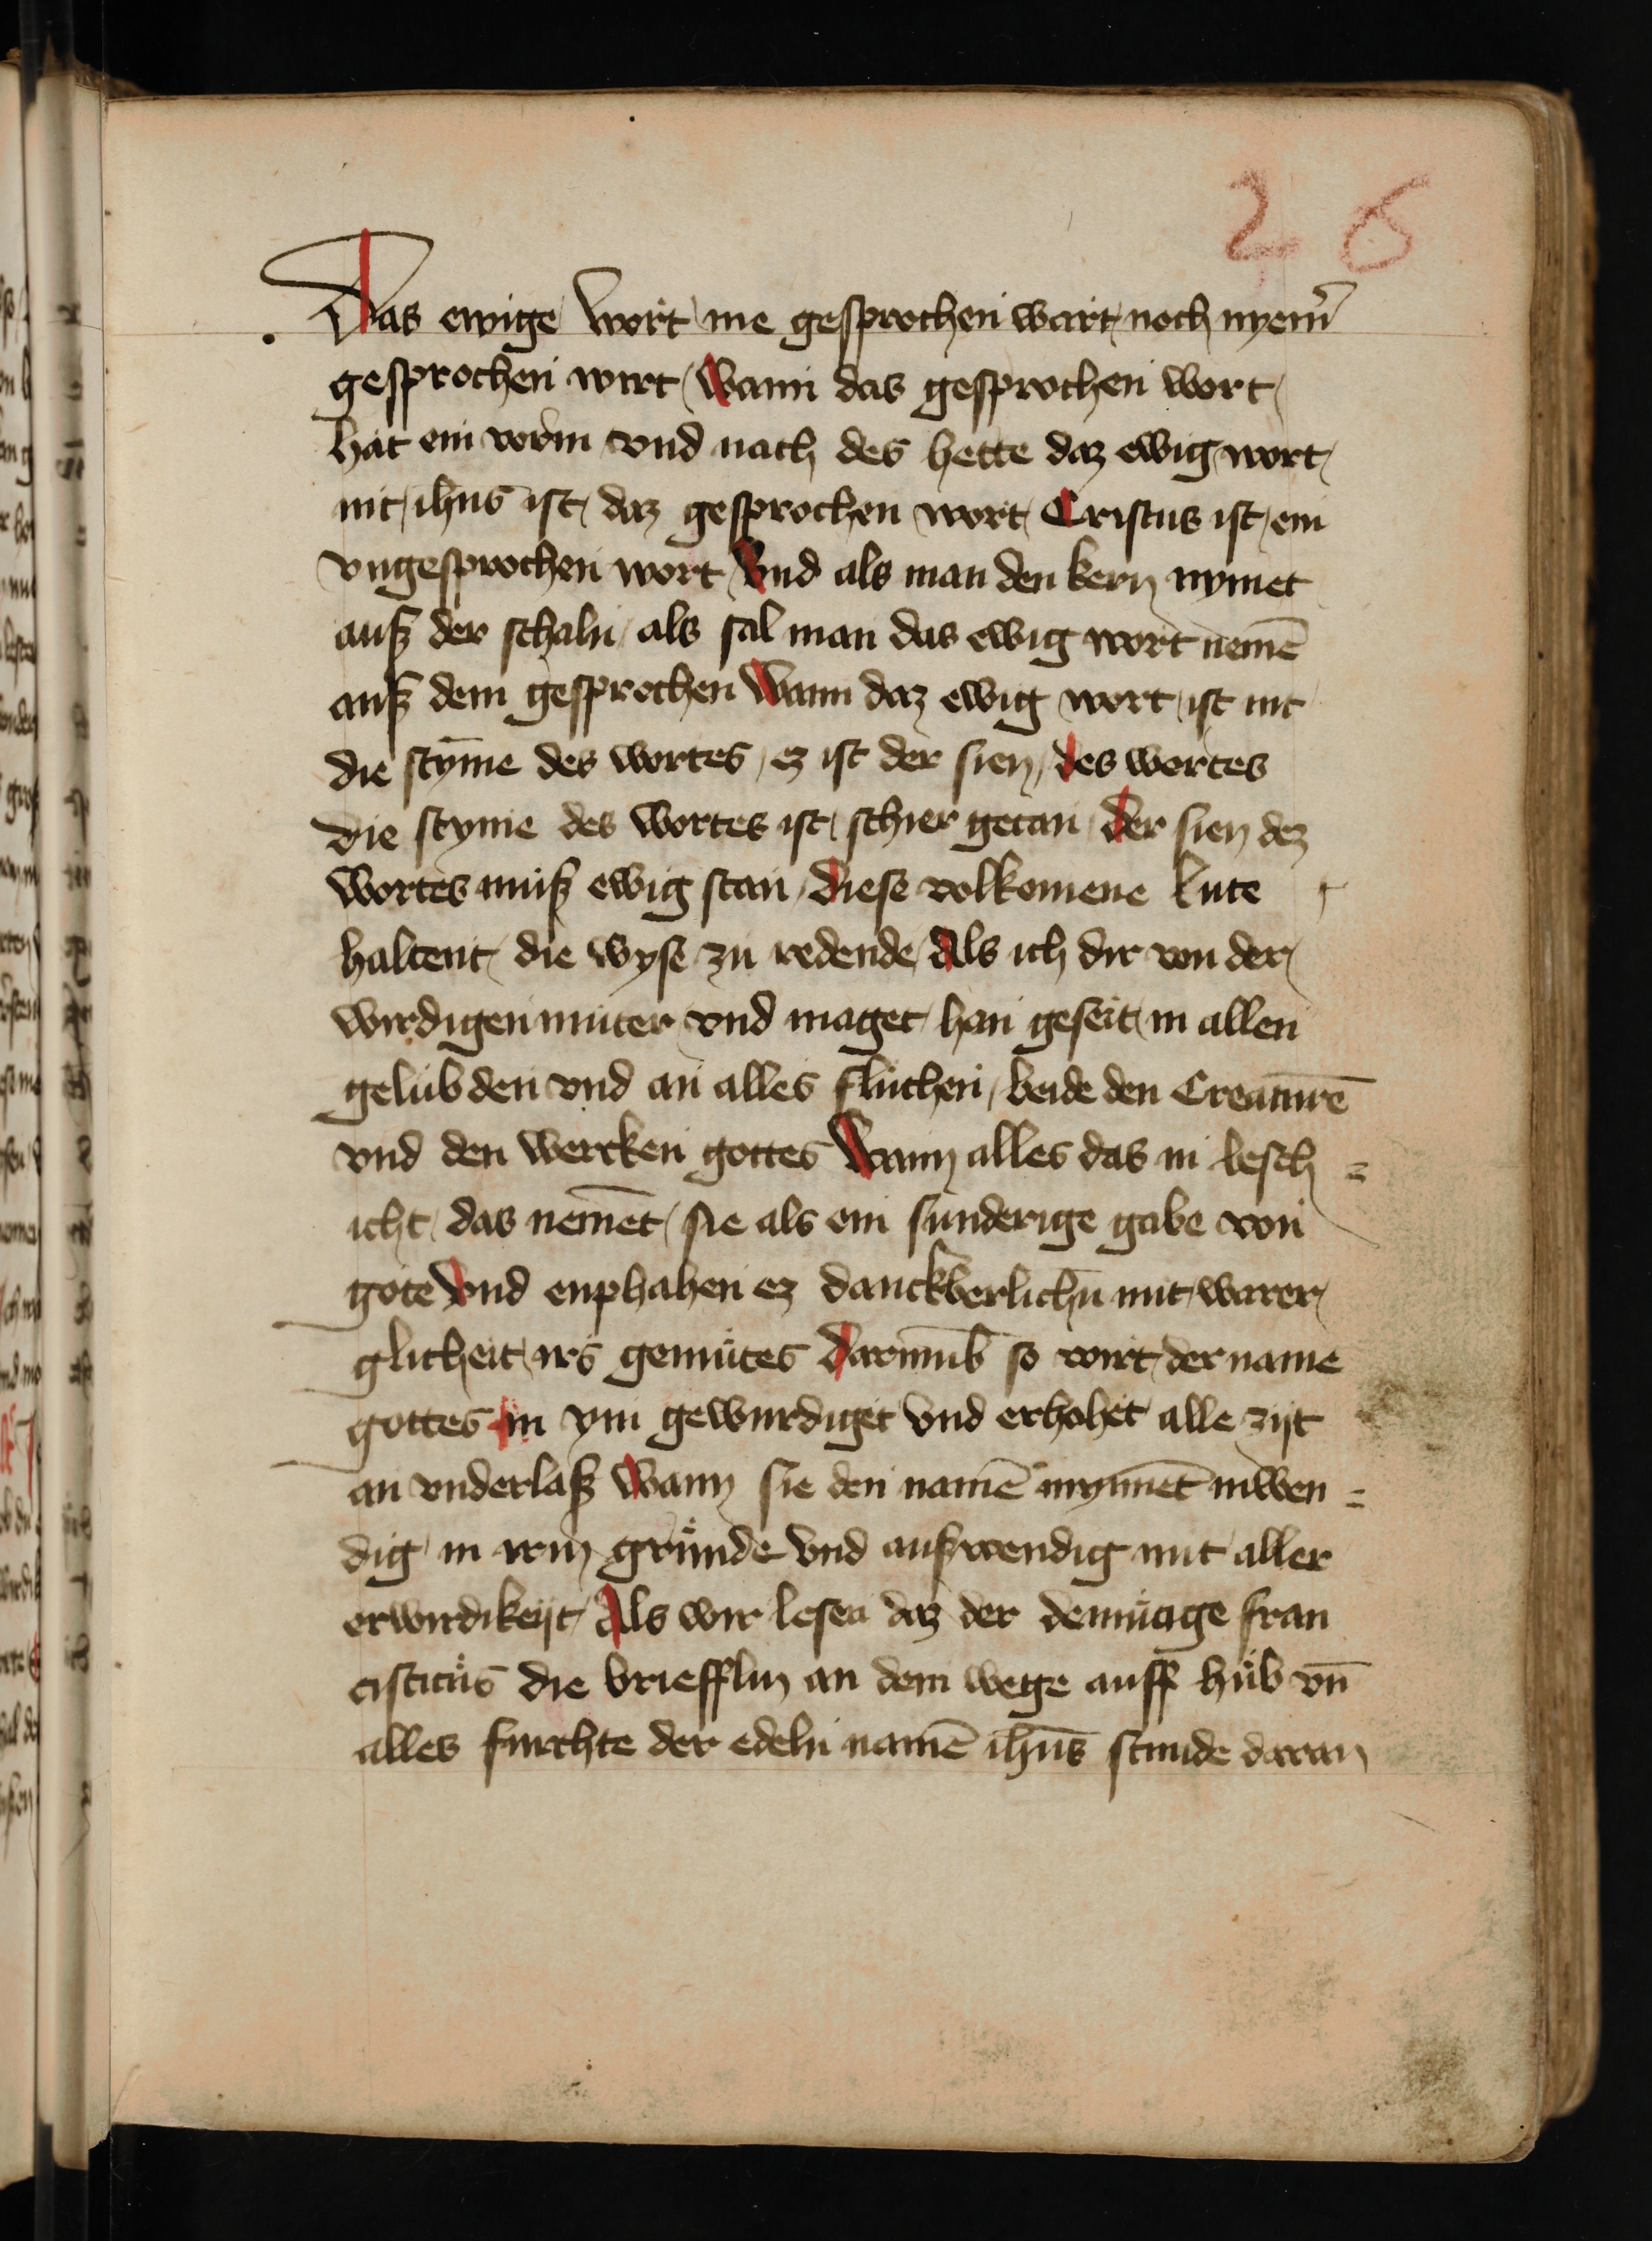 26
Das ewige wort nie gesprochen wart noch nyem̄
gesprochen wirt wann das gesprochen wort
hat ein vorm vnd nach des hette daz ewig wort
nit ihus ist daz gesprochen wort Cristus ist ein
vngesprochen wort vnd als man den kern nymet
auß der schaln als sal man das ewig wort nemē
auß dem gesprochen wann daz ewig wort ist nit
die stȳme des wortes ez ist der sien des wortes
die styme des wortes ist schier getan der sien dez
wortes muß ewig stan diese volkomene lute
haltent die wyse zu redende Als ich dir von der
wirdigen muter vnd maget han geseit in allen
gelubden vnd an alles fluchen beide den Creaturē
vnd den wercken gottes wann alles das in besch=
icht das nemēt sie als ein sunderige gabe von
gote vnd enphahen ez danckberlichn̄ mit warer
glicheit irs gemutes darumb so wirt der name
gottes in yn gewurdiget vnd erhohet alle zijt
an vnderlaß wann sie den namē mynnēt inwen=
dig in irm grunde vnd ausßwendig mit aller
erwirdikeijt Als wir lesen daz der demutige fran
cisticus die briefflin an dem wege auff hub vn̄
alles furchte der edeln namē ihūs stunde daran